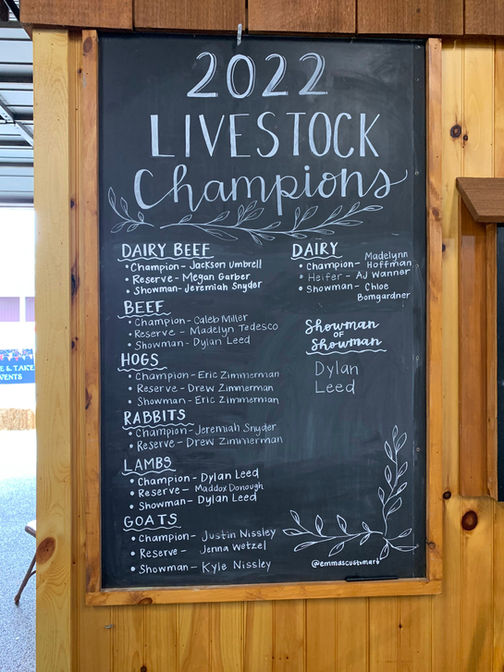 2022
LIVESTOCK
Champions
DAIRY BEEF
• Champion - Jackson Umbrell
• Reserve - Megan Garber
• Showman - Jeremiah Snyder
BEEF
• Champion - Caleb Miller
• Reserve - Madelyn Tedesco
• Showman - Dylan Leed
HOGS
• Champion - Eric Zimmerman
• Reserve - Drew Zimmerman
• Showman - Eric Zimmerman
RABBITS
• Champion - Jeremiah Snyder
• Reserve - Drew Zimmerman
LAMBS
• Champion - Dylan Leed
• Reserve - Maddox Donough
• Showman - Dylan Leed
GOATS
• Champion - Justin Nissley
• Reserve - Jenna Wetzel
• Showman - Kyle Nissley
DAIRY
• Champion - Madelynn
Hoffman
• Heifer - AJ Wanner
• Showman - Chloe
Bomgardner
Showman
OF
Showman
Dylan
Leed
& TAKE
VENTS